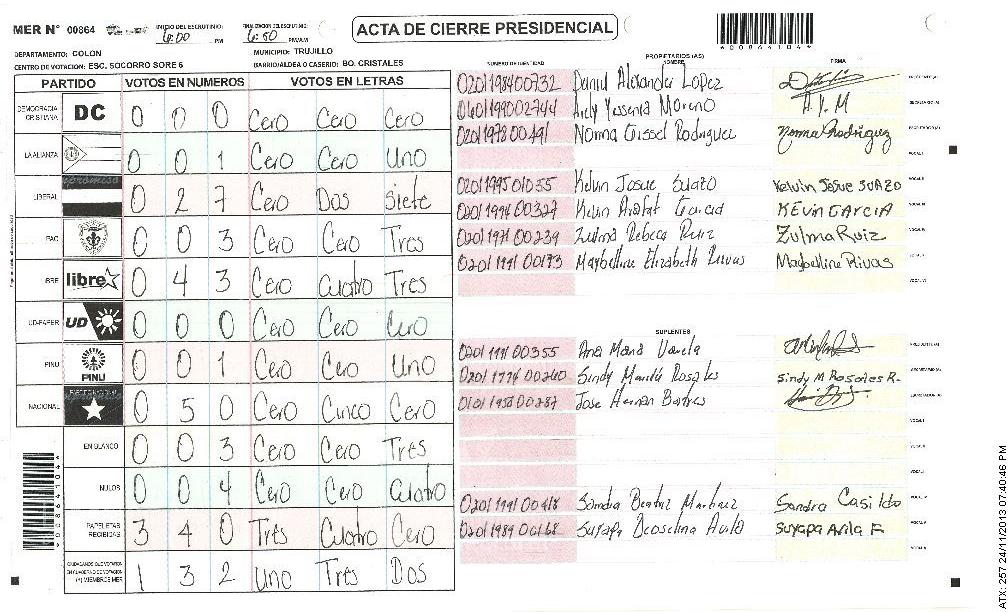 MER N° 00864 INICIO DEL ESCRUTINIO: 6:00 PM FINALIZACION DEL ESCRUTINIO: 6:50 PM/AM
ACTA DE CIERRE PRESIDENCIAL
*00864104*
DEPARTAMENTO: COLON MUNICIPIO: TRUJILLO
CENTRO DE VOTACION: ESC. SOCORRO SORE 6 BARRIO/ALDEA O CASERIO: BO. CRISTALES
PARTIDO VOTOS EN NUMEROS VOTOS EN LETRAS
DEMOCRACIA CRISTIANA DC 0 0 0 Cero Cero Cero
LA ALIANZA 0 0 1 Cero Cero Uno
LIBERAL 0 2 7 Cero Dos Siete
PAC 0 0 3 Cero Cero Tres
LIBRE libre 0 4 3 Cero Cuatro Tres
UD-FAPER UD 0 0 0 Cero Cero Cero
PINU PINU 0 0 1 Cero Cero Uno
NACIONAL 0 5 0 Cero Cinco Cero
EN BLANCO 0 0 3 Cero Cero Tres
NULOS 0 0 4 Cero Cero Cuatro
PAPELETAS RECIBIDAS 3 4 0 Tres Cuatro Cero
CIUDADANOS QUE VOTARON EN CUADERNO DE VOTACION (*) MIEMBROS MER 1 3 2 Uno Tres Dos
*00864104*
PROPIETARIOS (AS)
NUMERO DE IDENTIDAD NOMBRE FIRMA
0201198400732 Daniel Alexander Lopez PRESIDENTE(A)
0601199002744 Arely Yessenia Moreno A.Y.M SECRETARIO(A)
0201197800491 Norma Gissel Rodriguez Norma Rodriguez ESCRUTADOR(A)
VOCAL I
0201199501055 Kelvin Josue Suazo Kelvin Josue SUAZO VOCAL II
0201199400327 Kevin Arafat Garcia KEVIN GARCIA VOCAL III
0201197100239 Zulma Rebeca Ruiz Zulma Ruiz VOCAL IV
0201199100173 Maybelline Elizabeth Rivas Maybelline Rivas VOCAL V
VOCAL VI
SUPLENTES
0201199100355 Ana Maria Varela PRESIDENTE(A)
0201177400260 Sindy Rosales Sindy M Rosales R. SECRETARIO(A)
0101195800287 Jose Hernan ESCRUTADOR(A)
VOCAL I
VOCAL II
VOCAL III
0201199100418 Sandra Beatriz Martinez Sandra Casildo VOCAL IV
0201198900168 Suyapa Avila Suyapa Avila F VOCAL V
VOCAL VI
ATX: 257 24/11/2013 07:40:46 PM